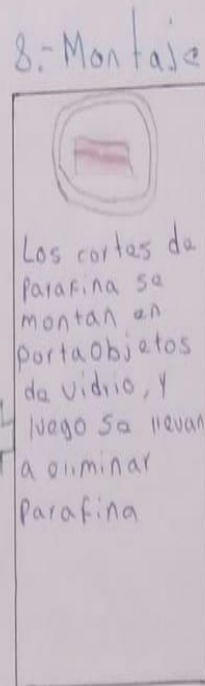 8.- Montaje
Los cortes de
Parafina se
montan en
portaobjetos
de vidrio, y
luego se llevan
a eliminar
Parafina